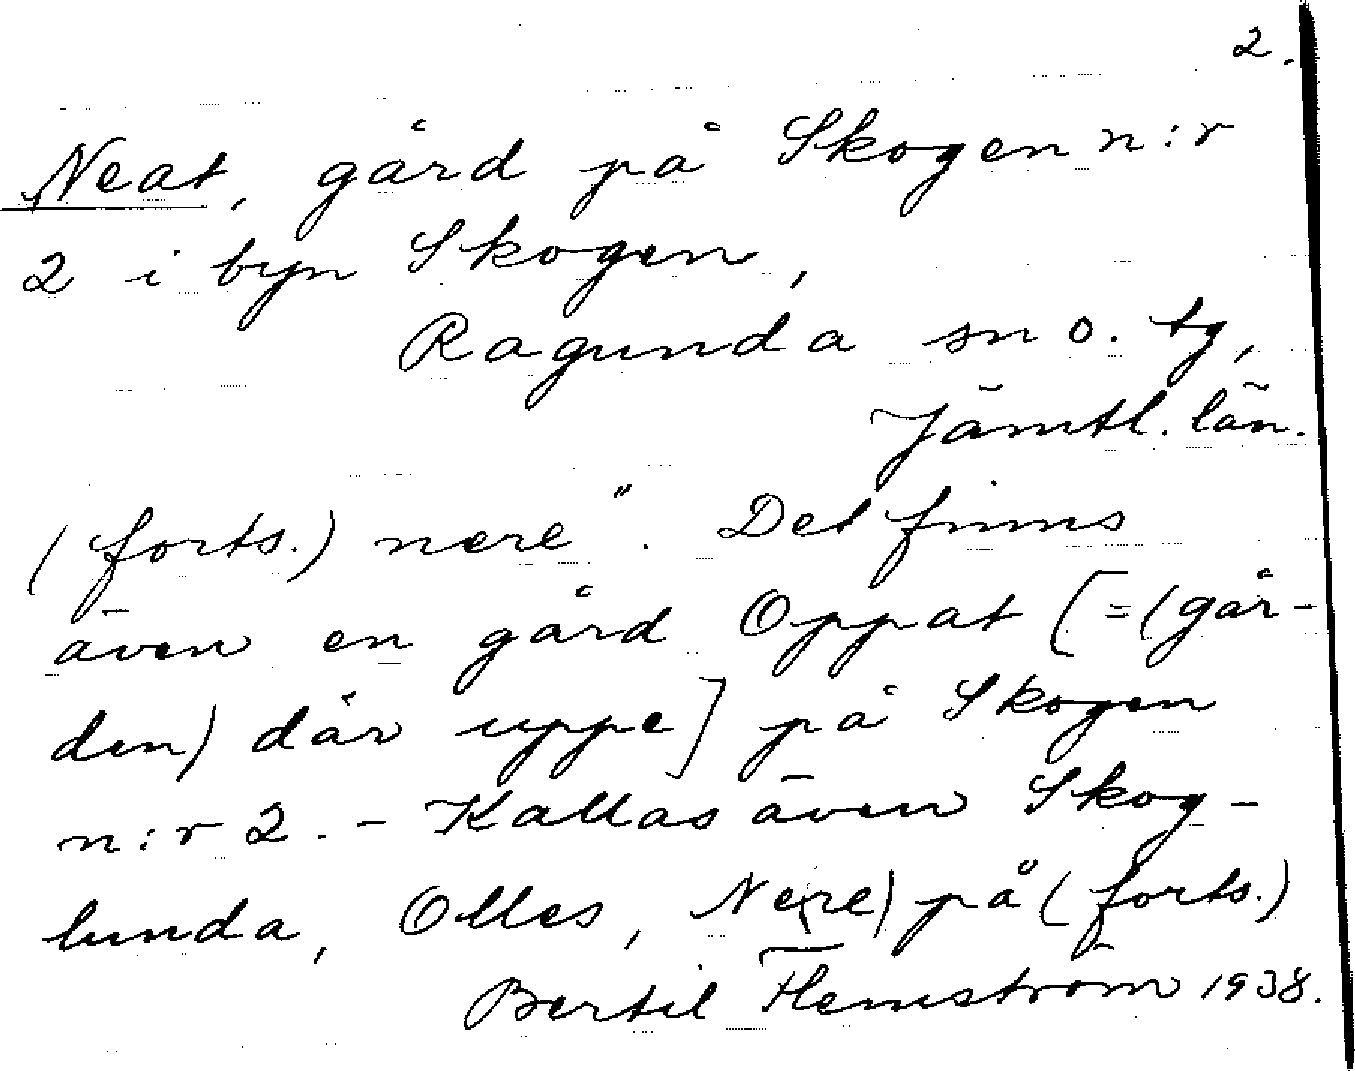 2.
Neat, gård på Skogen n:r
2 i byn Skogen,
Ragunda sn o. tg,
Jämtl. län.
(forts.) nere". Det finns
även en gård Oppat [= (går-
den) där uppe] på Skogen
n:r 2. - Kallas även Skog-
lunda, Olles, Ne(re) på (forts.)
Bertil Flemström 1938.